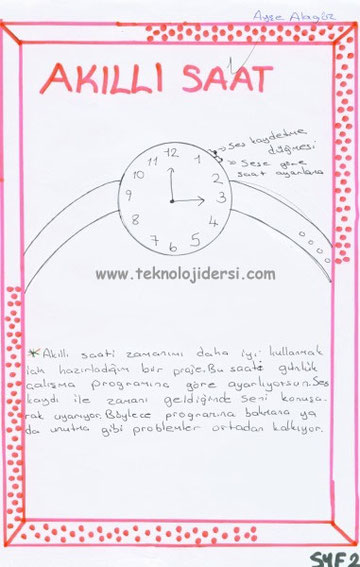 Ayşe Akagür
AKILLI SAAT
Ses kaydetme
düğmesi
Sese göre
saat ayarlama
12
11
1
10
2
9
3
8
4
7
5
6
www.teknolojidersi.com
* Akıllı saati zamanımı daha iyi kullanmak
için hazırladığım bir proje. Bu saati günlük
çalışma programına göre ayarlıyorsun. Ses
kaydı ile zamanı geldiğinde seni konuşa-
rak uyarıyor. Böylece programına bakmana ya
da unutma gibi problemler ortadan kalkıyor.
SYF 2